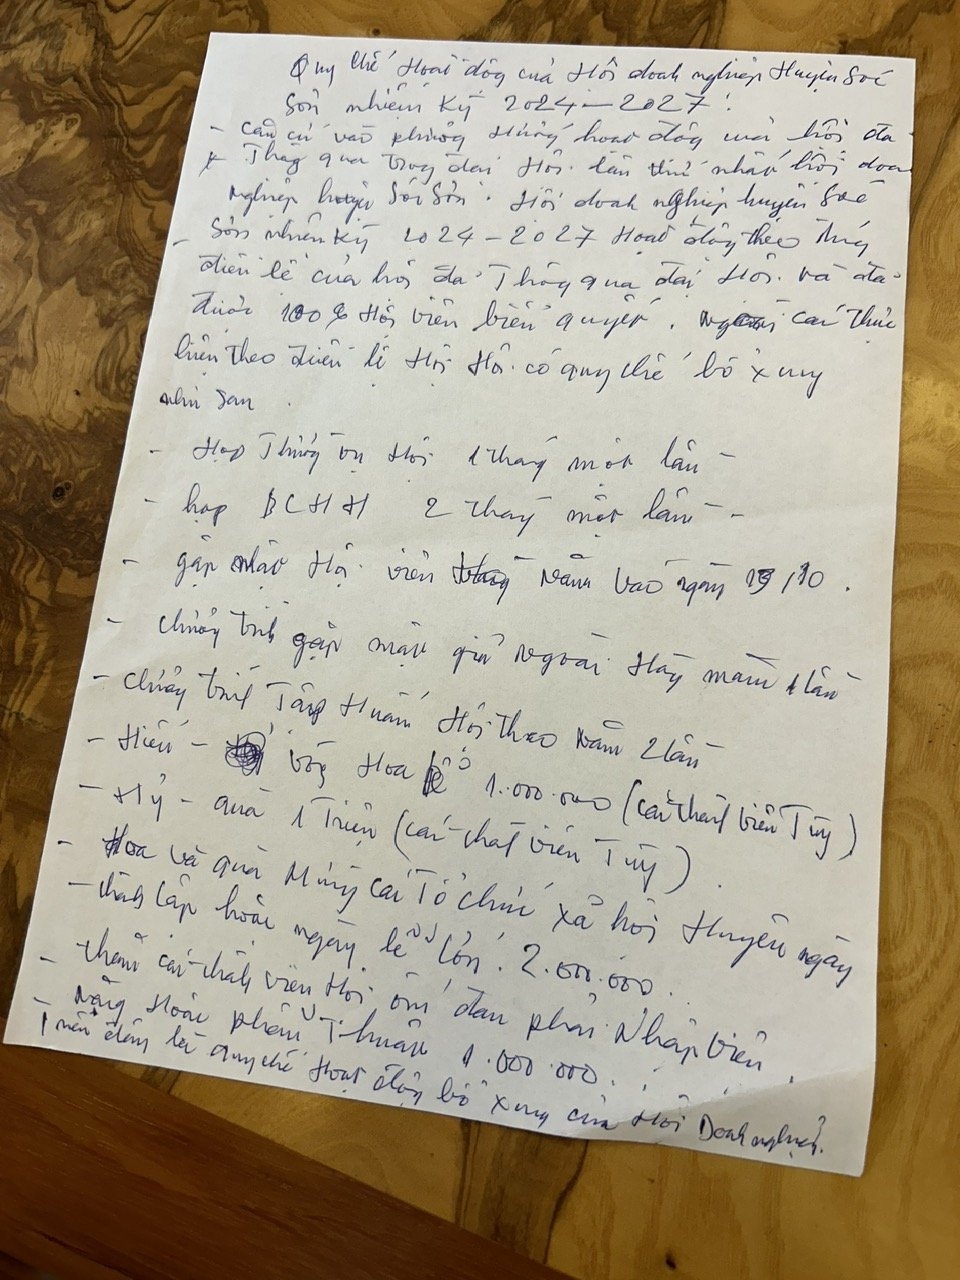 Quy chế Hoạt động của Hội doanh nghiệp Huyện Sóc
Sơn nhiệm Kỳ 2024-2027.
- Căn cứ vào phương Hướng hoạt động của hội đã
Thông qua trong đại Hội lần thứ nhất hội doanh
nghiệp huyện Sóc Sơn. Hội doanh nghiệp huyện Sóc
- Sơn nhiệm Kỳ 2024-2027 Hoạt động theo đúng
điều lệ của hội đã Thông qua đại Hội và đã
được 100% Hội viên biểu quyết. các thực
hiện theo điều lệ Hội Hội có quy chế bổ xung
như sau.
- Họp Thường vụ Hội 1 tháng một lần -
- họp BCHH 2 tháng một lần -
- gặp mặt Hội viên năm vào ngày 13/10.
- chương trình gặp mặt giã Ngoại Hàng năm 1 lần
- chương trình Tập Huấn Hội theo năm 2 lần
- Hiếu - vòng Hoa 1.000.000 (các thành viên Tùy)
- Hỷ - quà 1 Triệu (các thành viên Tùy).
- Hoa và quà Mừng các Tổ chức xã hội Huyện ngày
- thành lập hoặc ngày lễ lớn. 2.000.000.
thăm các thành viên Hội ốm đau phải Nhập viện
- Nặng Hoặc phẫu Thuật 1.000.000.
Trên đây là quy chế Hoạt động bổ xung của Hội Doanh nghiệp.